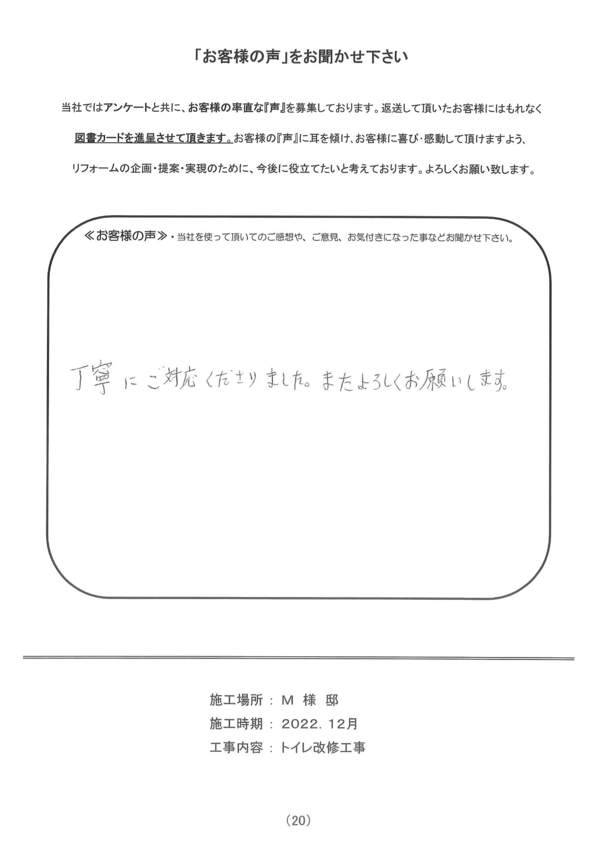 「お客様の声」をお聞かせ下さい
当社ではアンケートと共に、お客様の率直な『声』を募集しております。返送して頂いたお客様にはもれなく
図書カードを進呈させて頂きます。お客様の『声』に耳を傾け、お客様に喜び・感動して頂けますよう、
リフォームの企画・提案・実現のために、今後に役立てたいと考えております。よろしくお願い致します。
≪お客様の声≫・当社を使って頂いてのご感想や、ご意見、お気付きになった事などお聞かせ下さい。
丁寧にご対応くださりました。またよろしくお願いします。
施工場所 : M 様 邸
施工時期 : 2022. 12月
工事内容 : トイレ改修工事
(20)